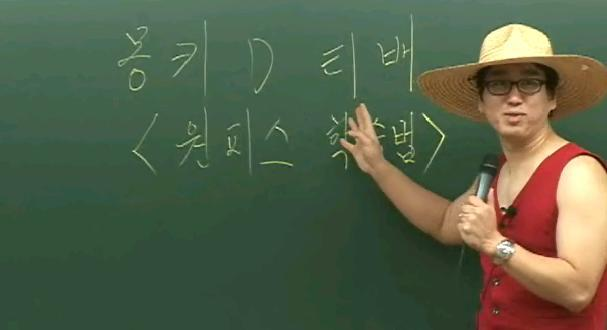 몽키 D 티배
<원피스 학습법>